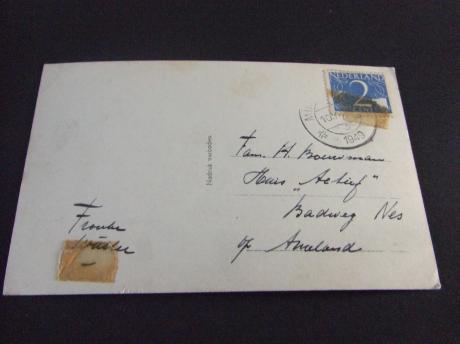 NEDERLAND
2
CENT
1949
Nadruk verboden
Fam. H. Bouwman
Huis "Actief"
Badweg Nes
op Ameland